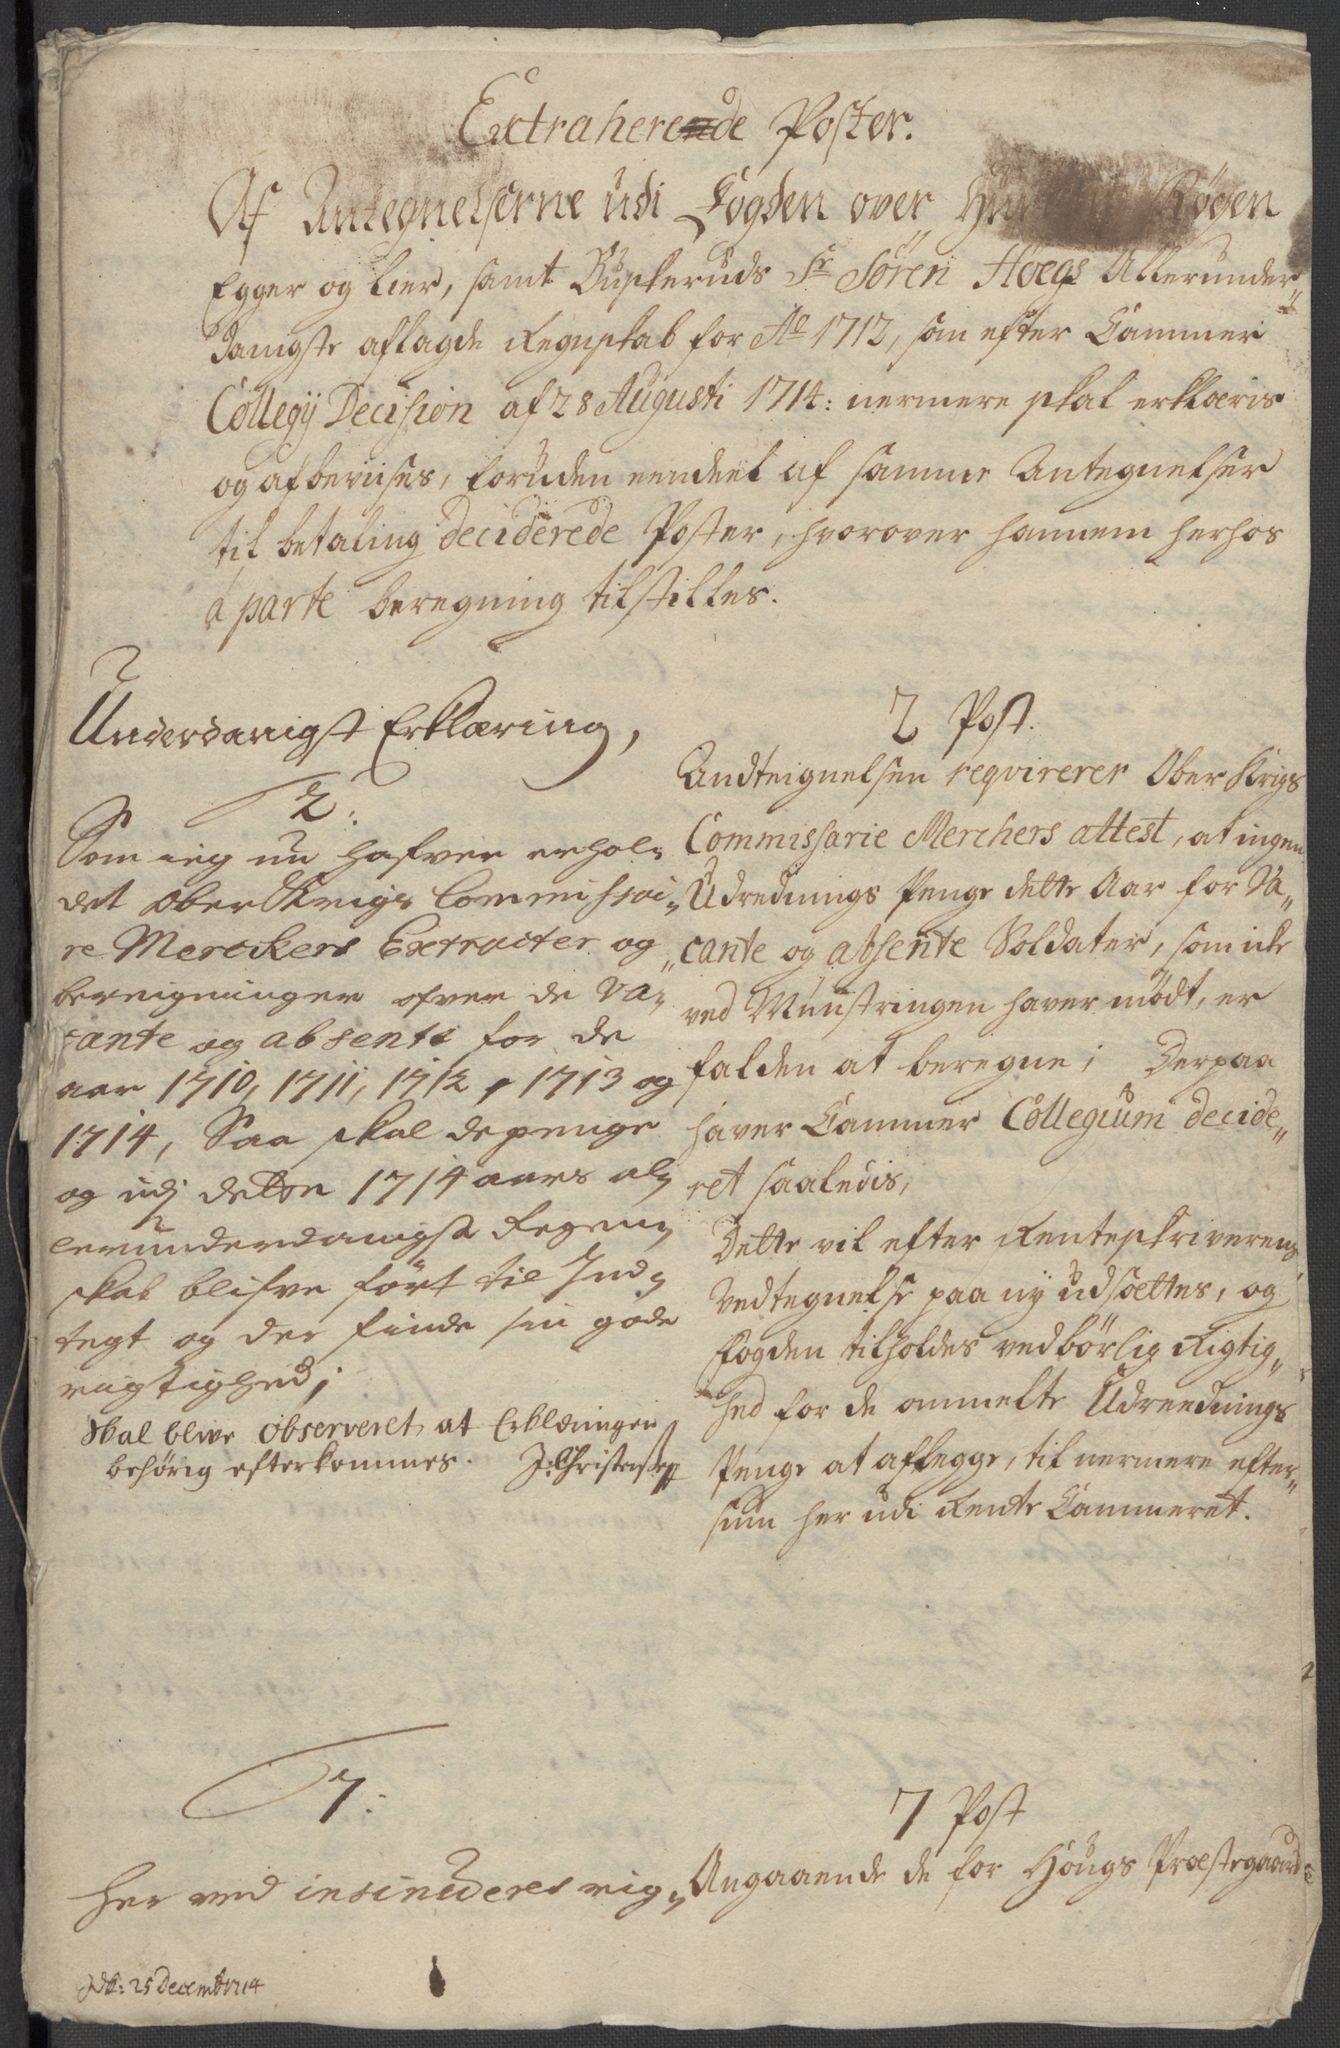 Extraherede Poster.
Af Antegnelserne udi Fogden over Hur Røgen
Egger og Lier, samt Buskeruds Sr Søren Høegs Allerunder„
danigste aflagde Regnskab for Ao 1712, som efter Cammer
Collegij Decision af 28 Augusti 1714: nermere skal erklæris
og afbeviises, foruden eendeel af samme Antegnelser
til betaling deciderede Poster, hvorover hannem herhos
à parte beregning tilstilles.
Underdanigst Erklæring,
2:
Som ieg nu hafver erhol„
det Ober Krigs Commissai„
re Merckers Extracter og
bereigninger ofver de va„
cante og absente for de
aar 1710, 1711, 1712, 1713 og
1714, Saa skal de penge
og udj dette 1714 aars al„
lerunderdanigst Regen„
skab blifve ført til Ind„
tegt og der finde sin gode
rigtighed;
Skal blive observeret, at Erklæringen
behørig efterkommes. J: Christensen
2 Post.
Andteignelsen reqvirerer Ober Krigs
Commissarie Merchers attest, at ingen
Udrednings Penge dette Aar for Va„
cante og absente Soldater, som icke
ved Munstringen haver mødt, er
falden at beregne; Derpaa
haver Cammer Collegium decide„
ret saaledis,
Dette vil efter Renteskriverens
Vedtegnelse paa ny udsættes, og
Fogden tilholdes vedbørlig Rigtig„
hed for de ommelte Udreednings
Penge at aflegge, til nermere efter„
siun her udi Rente Cammeret.
7:
Her ved insinueres rig„
7 Post
Angaaende de for Hougs Præstegaard
25 Decemb 1714